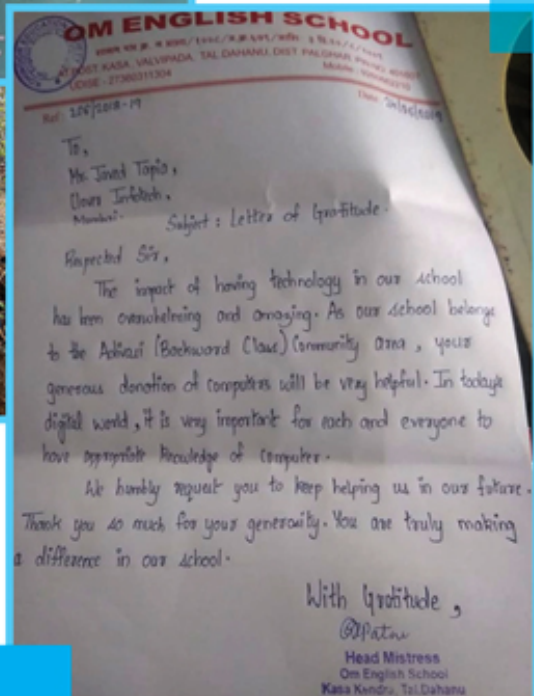 OM ENGLISH SCHOOL
POST KASA, VALVIPADA, TAL.DAHANU, DIST. PALGHAR,
UDISE - 27360311304
Ref: 206/2018-19
Date:
To,
Mr. Javed Tapia,
Clover Infotech,
Mumbai.
Subject : Letter of Gratitude.
Respected Sir,
The impact of having technology in our school
has been overwhelming and amazing. As our school belongs
to the Adivasi (Backward Class) Community area, your
generous donation of computers will be very helpful. In today's
digital world, it is very important for each and everyone to
have appropriate knowledge of computer.
We humbly request you to keep helping us in our future.
Thank you so much for your generosity. You are truly making
a difference in our school.
With Gratitude,
Head Mistress
Om English School
Kasa Kendra, Tal.Dahanu